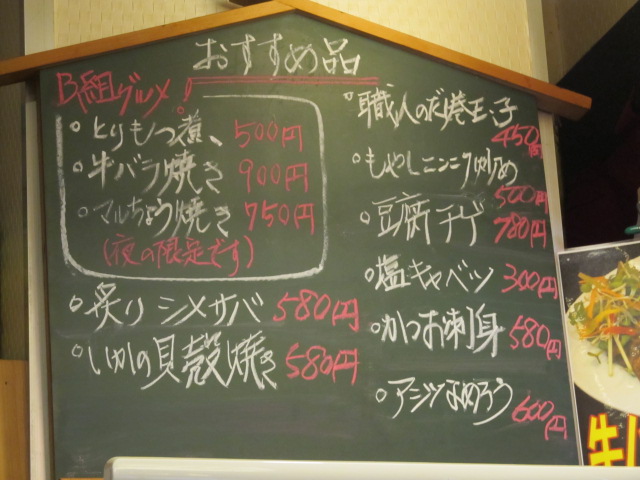 おすすめ品
B組グルメ!
・とりもつ煮、 500円
・牛バラ焼き 900円
・マルちょう焼き 750円
(夜の限定です)
・炙りシメサバ 580円
・いかの貝殻焼き 580円
・職人のだし焼玉子
450円
・もやしニンニク炒め
500円
・豆腐チゲ 780円
・塩キャベツ 300円
・かつお刺身 580円
・アジなめろう 600円
牛